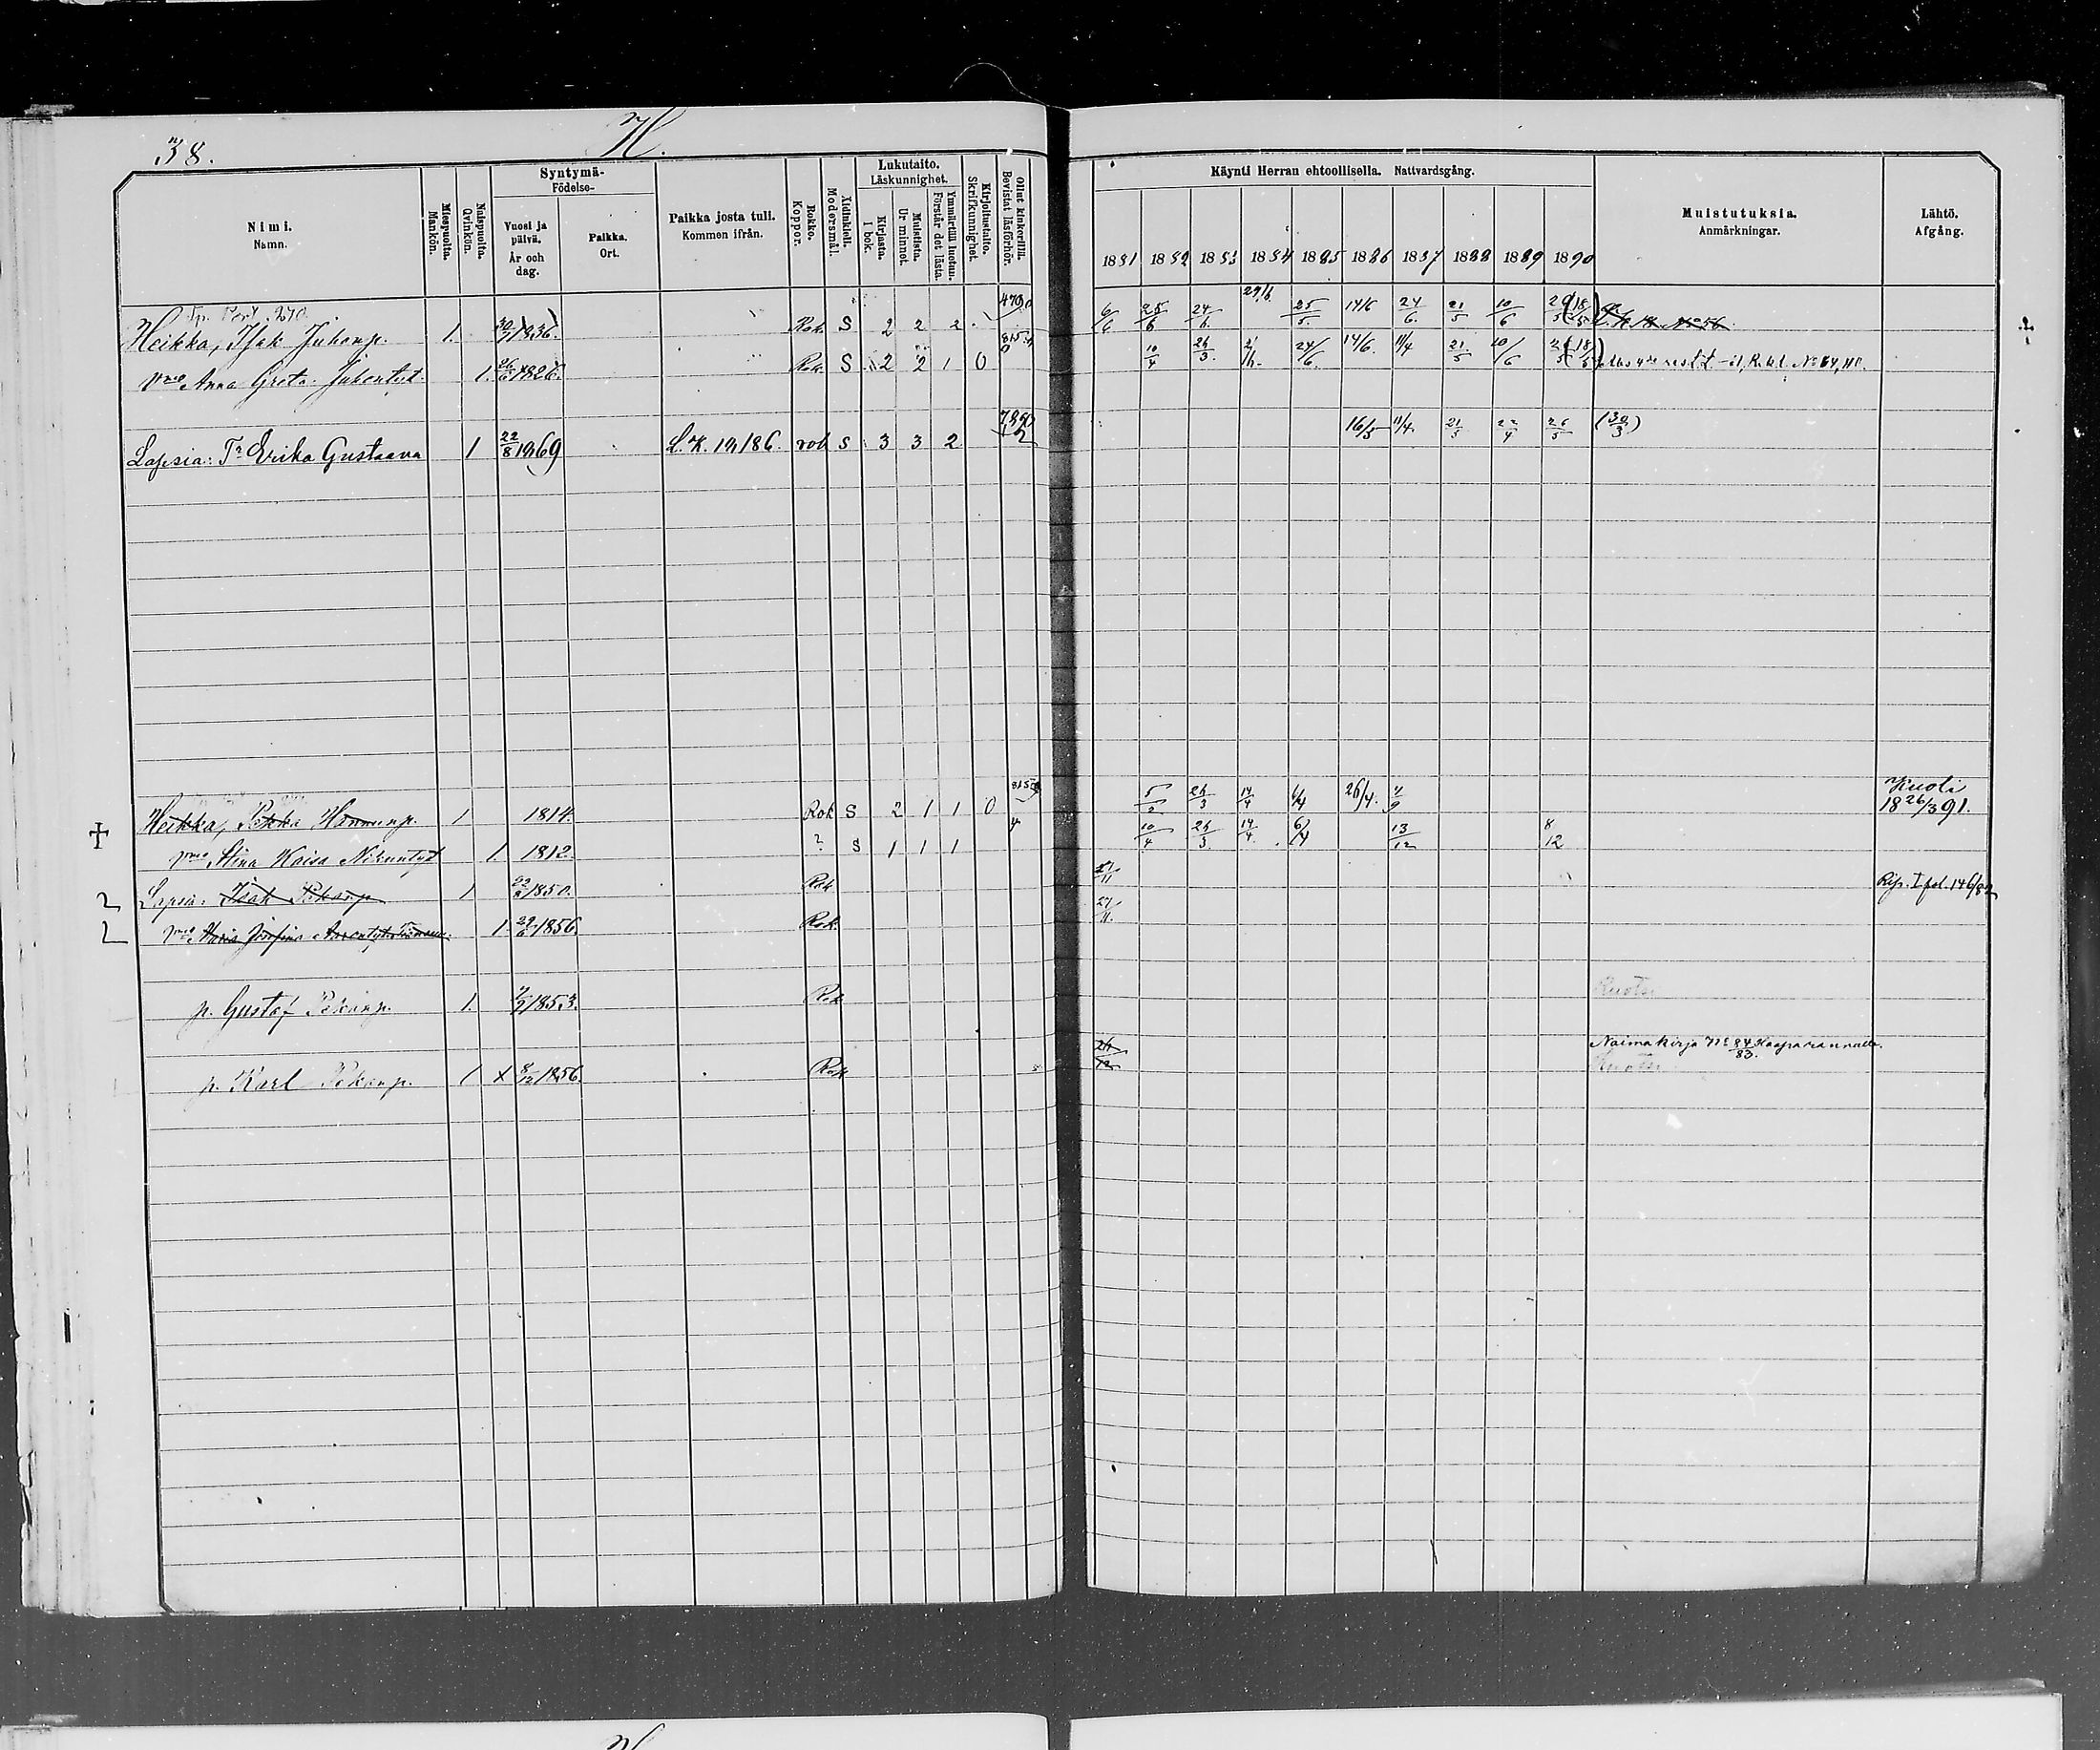 38.
H.
Nimi.
Namn.
Miespuolta.
Mankön.
Naispuolta.
Qvinkön.
Syntymä-
Födelse-
Vuosi ja päivä.
År och dag.
Paikka.
Ort.
Paikka josta tuli.
Kommen ifrån.
Rokko.
Koppor.
Äidinkieli.
Modersmål.
Lukutaito.
Läskunnighet.
Kirjasta.
I bok.
Muistista.
Ur minnet.
Ymmärtää luetun.
Förstår det lästa.
Kirjoitustaito.
Skrifkunnighet.
Ollut kinkerillä.
Bevistat läsförhör.
Käynti Herran ehtoollisella. Nattvardsgång.
1881 1882 1883 1884 1885 1886 1887 1888 1889 1890
Muistutuksia.
Anmärkningar.
Lähtö.
Afgång.
Heikka, Isak Juhonp. 1. 30/7 1836. Rok. S 2 2 2 6/6 25/6 24/6 29/6 25/5 14/6 24/6 21/5 10/6
Vmo Anna Greta Juhontyt. 1. 26/6 1826. Rok. S 2 2 1 0 10/4 26/3 24/6 14/6 11/4 21/5 10/6
Lapsia: Tr Erika Gustaava 1 22/8 1869 L. K. 12,186. rok S 3 3 2 16/5 11/4 21/5 22/4 26/5 (30/3)
Heikka, Pekka Hannunp. 1 1814. Rok S 2 1 1 0 5/2 26/3 14/4 6/4 26/4. Kuoli
18 26/3 91.
vmo Stina Kaisa Niluntyt 1. 1812. ? S 1 1 1 10/4 26/3 14/4 6/4 13/12 8/12
Lapsia: Isak Pekanp 1 1850. Rok 27/11 Rip. I fol. 146/82
vmo Maria Josefina 1. 29/6 1856. Rok. 27/11.
p. Gustaf Pekanp. 1. 1853. Rok Ruots.
Naimakirja No 84/83. Haaparannalle.
p. Karl Pekanp. 1 X 8/12 1856. Rok